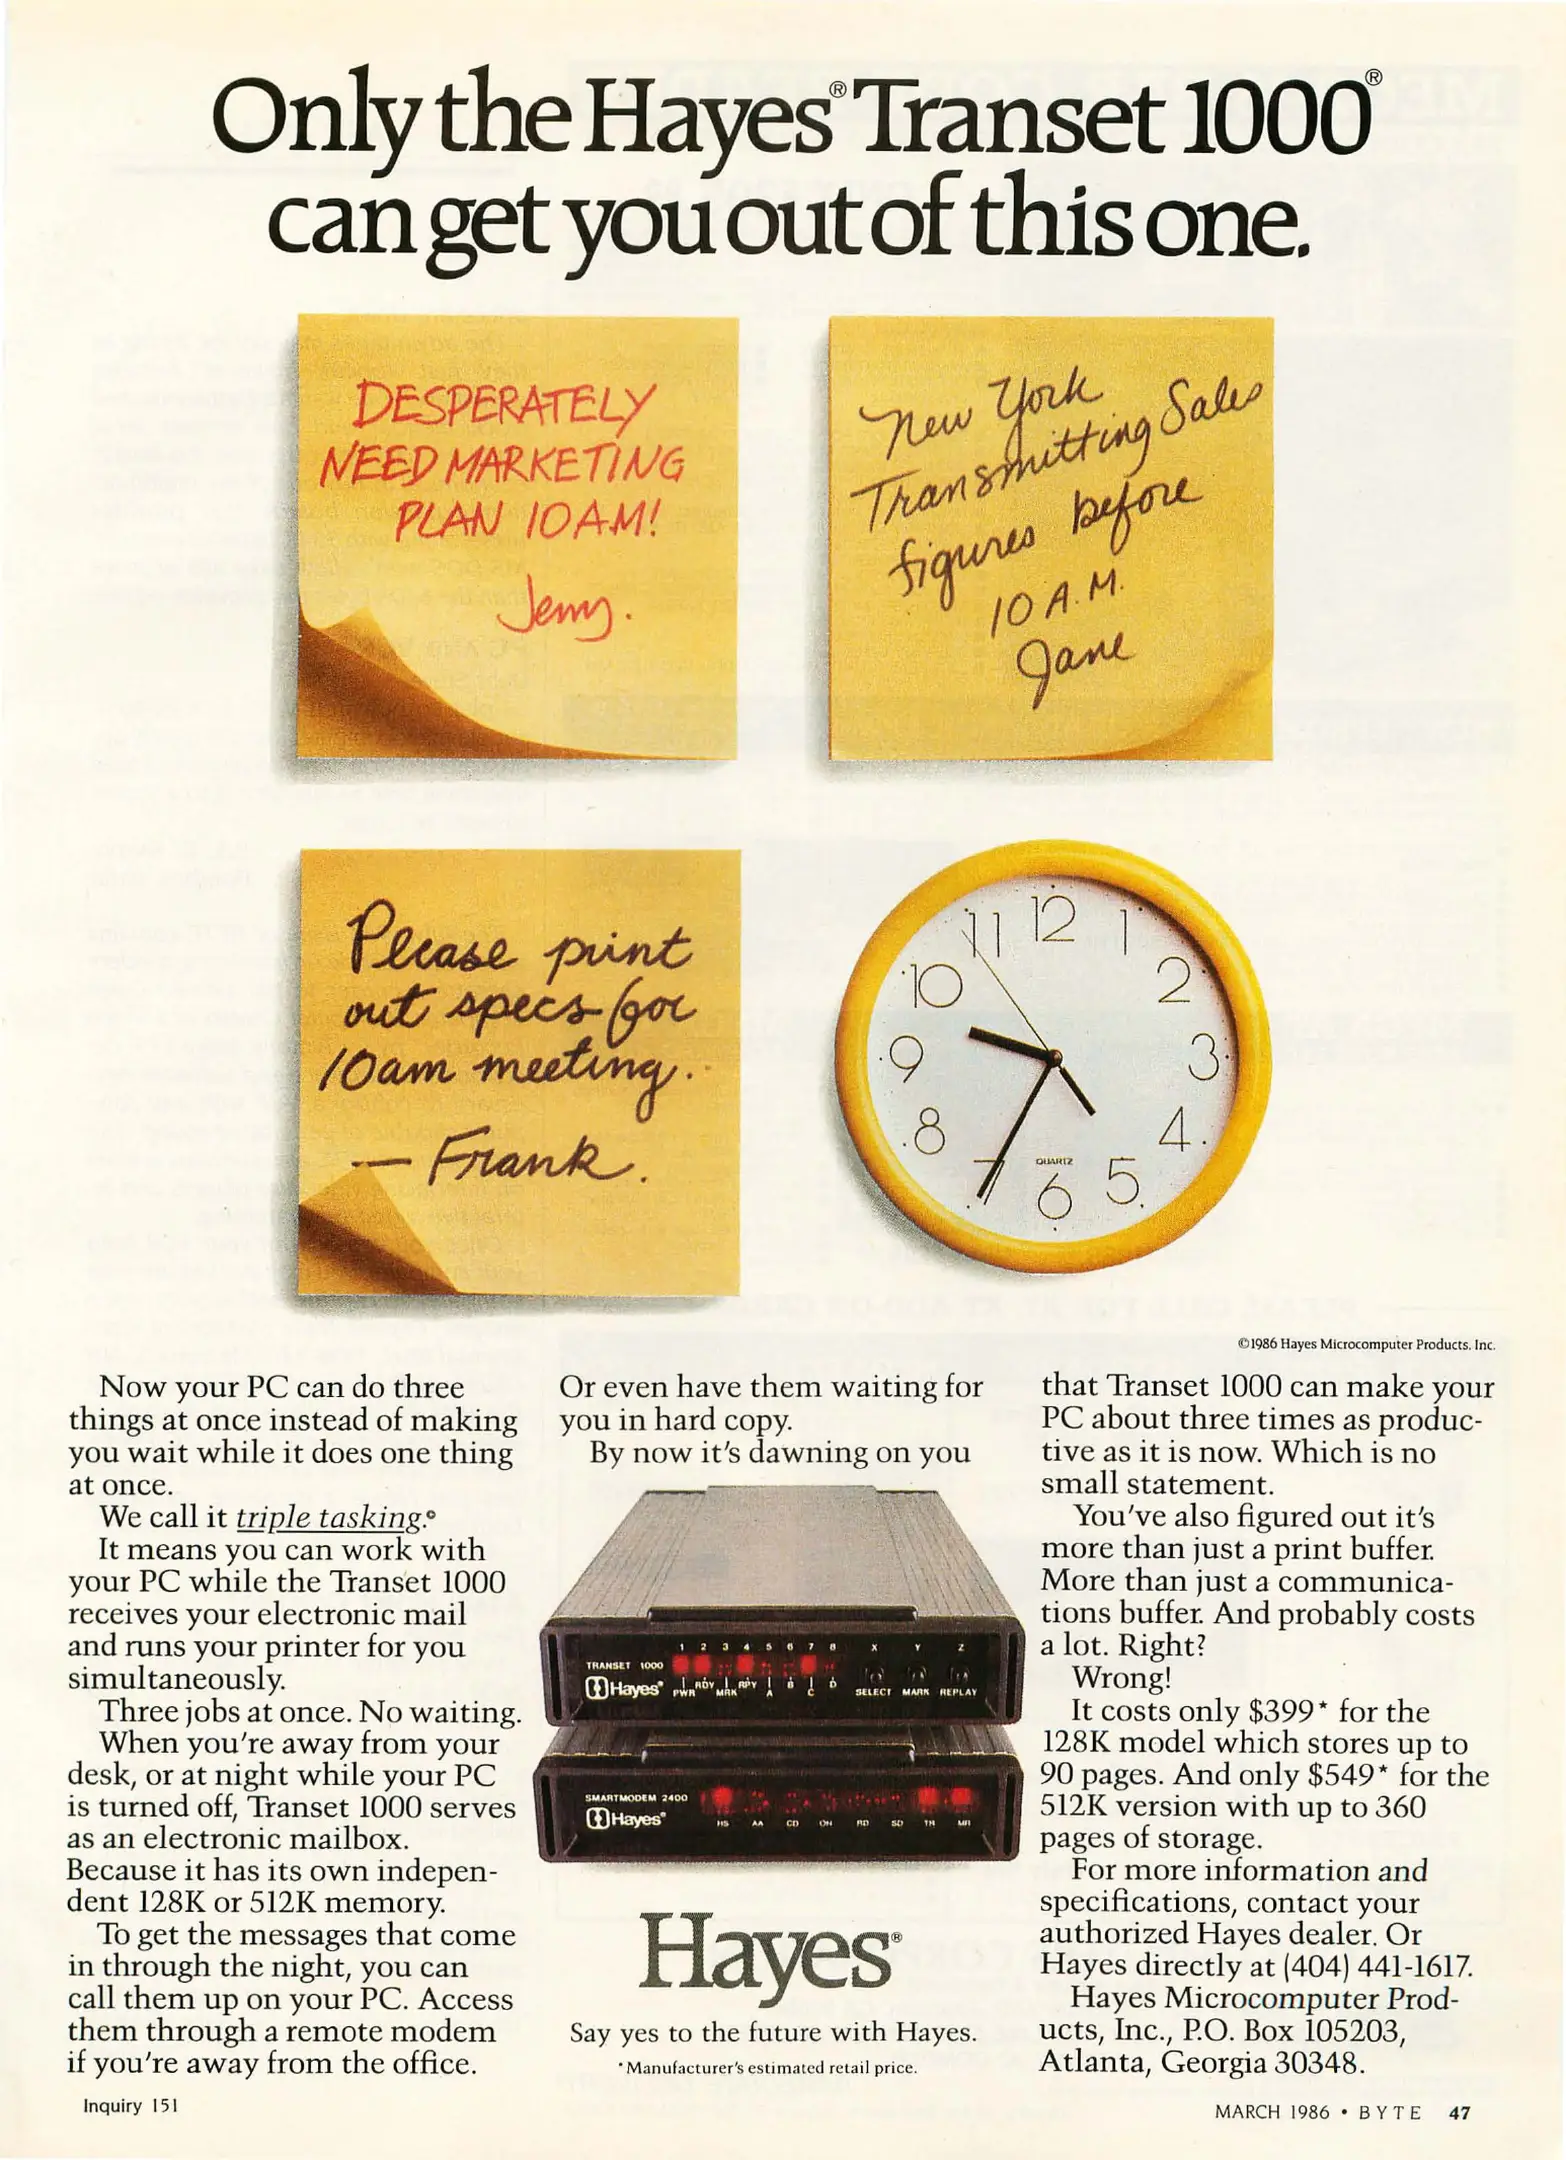 Only the Hayes® Transet 1000®
can get you out of this one.
DESPERATELY
NEED MARKETING
PLAN 10 A.M!
Jerry.
New York
Transmitting Sales
figures before
10 A.M.
Jane
Please print
out specs for
10am meeting.
— Frank.
12
11 1
10 2
9 3
8 4
7 5
6
QUARTZ
©1986 Hayes Microcomputer Products, Inc.
Now your PC can do three
things at once instead of making
you wait while it does one thing
at once.
We call it triple tasking.©
It means you can work with
your PC while the Transet 1000
receives your electronic mail
and runs your printer for you
simultaneously.
Three jobs at once. No waiting.
When you're away from your
desk, or at night while your PC
is turned off, Transet 1000 serves
as an electronic mailbox.
Because it has its own indepen-
dent 128K or 512K memory.
To get the messages that come
in through the night, you can
call them up on your PC. Access
them through a remote modem
if you're away from the office.
Or even have them waiting for
you in hard copy.
By now it's dawning on you
1 2 3 4 5 6 7 8 X Y Z
TRANSET 1000
Hayes®
PWR RDY MRK RPY A B C D SELECT MARK REPLAY
SMARTMODEM 2400
Hayes®
HS AA CD OH RD SD TR MR
Hayes®
Say yes to the future with Hayes.
*Manufacturer's estimated retail price.
that Transet 1000 can make your
PC about three times as produc-
tive as it is now. Which is no
small statement.
You've also figured out it's
more than just a print buffer.
More than just a communica-
tions buffer. And probably costs
a lot. Right?
Wrong!
It costs only $399* for the
128K model which stores up to
90 pages. And only $549* for the
512K version with up to 360
pages of storage.
For more information and
specifications, contact your
authorized Hayes dealer. Or
Hayes directly at (404) 441-1617.
Hayes Microcomputer Prod-
ucts, Inc., P.O. Box 105203,
Atlanta, Georgia 30348.
Inquiry 151
MARCH 1986 • BYTE 47